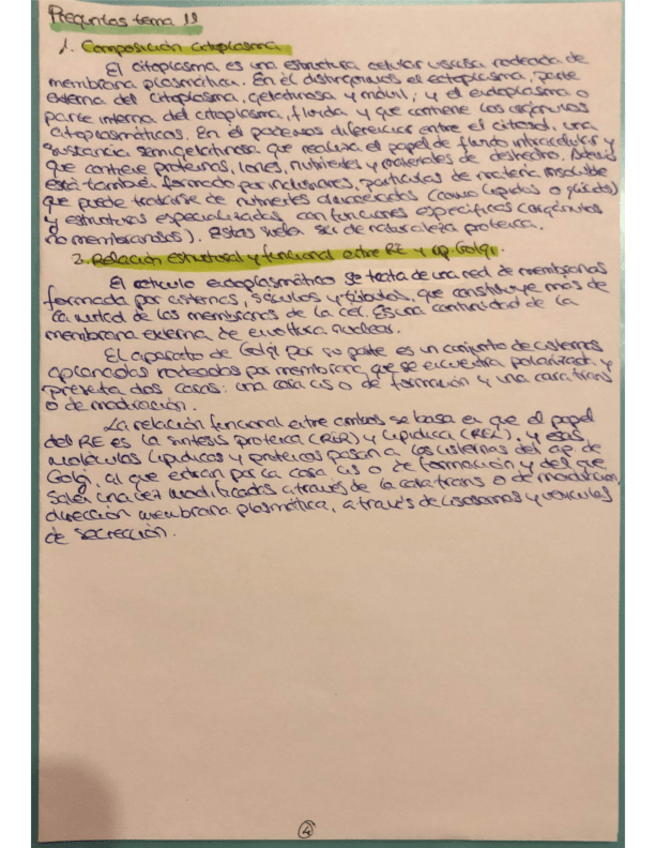 Preguntas tema 11
1. Composición citoplasma
El citoplasma es una estructura celular viscosa rodeada de
membrana plasmática. En él distinguimos el ectoplasma, parte
externa del citoplasma, gelatinosa y móvil, y el endoplasma o
parte interna del citoplasma, fluida y que contiene los orgánulos
citoplasmáticos. En él podemos diferenciar entre el citosol, una
sustancia semigelatinosa que realiza el papel de fluido intracelular y
que contiene proteínas, iones, nutrientes y materiales de deshecho. Además
está también formado por inclusiones, partículas de materia insoluble
que puede tratarse de nutrientes almacenados (como lípidos o glúcidos)
y estructuras especializadas con funciones específicas (orgánulos
no membranosos). Estas suelen ser de naturaleza proteica.
2. Relación estructural y funcional entre RE y ap. Golgi.
El retículo endoplasmático se trata de una red de membranas
formada por cisternas, sáculos y túbulos, que constituye más de
la mitad de las membranas de la cél. Es una continuidad de la
membrana externa de envoltura nuclear.
El aparato de Golgi por su parte es un conjunto de cisternas
aplanadas rodeadas por membrana, que se encuentra polarizada y
presenta dos caras: una cara cis o de formación y una cara trans
o de maduración.
La relación funcional entre ambos se basa en que el papel
del RE es la síntesis proteica (RER) y lipídica (REL), y esas
moléculas lipídicas y proteicas pasan a las cisternas del ap. de
Golgi, al que entran por la cara cis o de formación y del que
salen una vez modificadas a través de la cara trans o de maduración,
dirección membrana plasmática, a través de lisosomas y vesículas
de secreción.
4